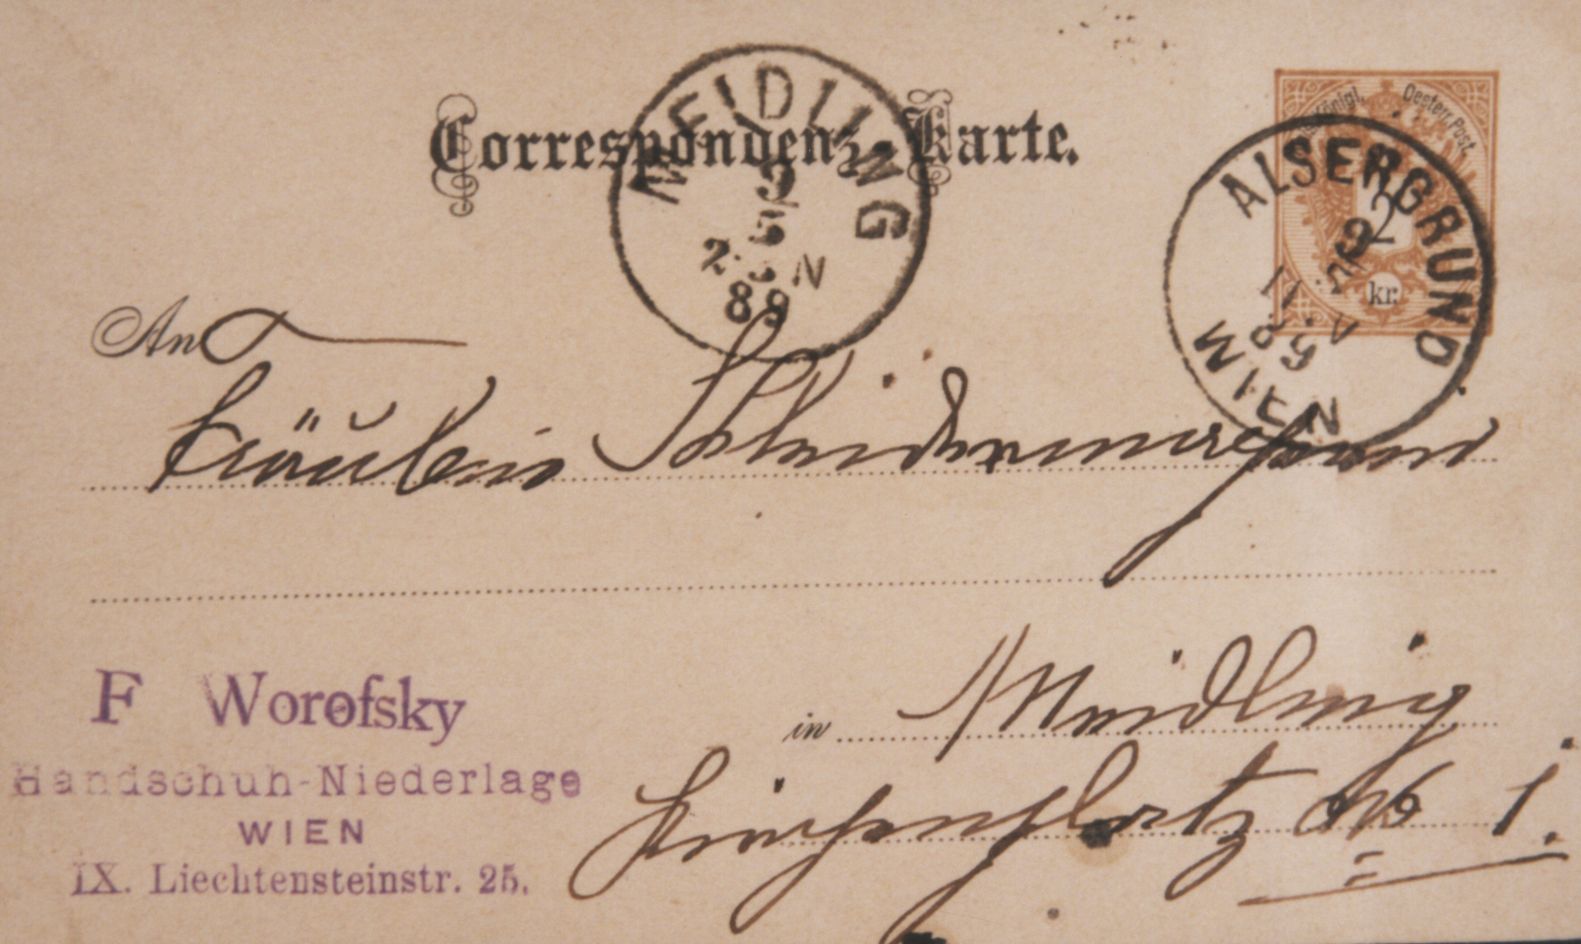 Correspondenz-Karte.
MEIDLING
9
5
N
89
Oesterr. Post
2
kr.
ALSERGRUND
9
5
WIEN
An
Fräulein
in Meidling
Kirchenplatz No 1.
F Worofsky
Handschuh-Niederlage
WIEN
IX. Liechtensteinstr. 25.